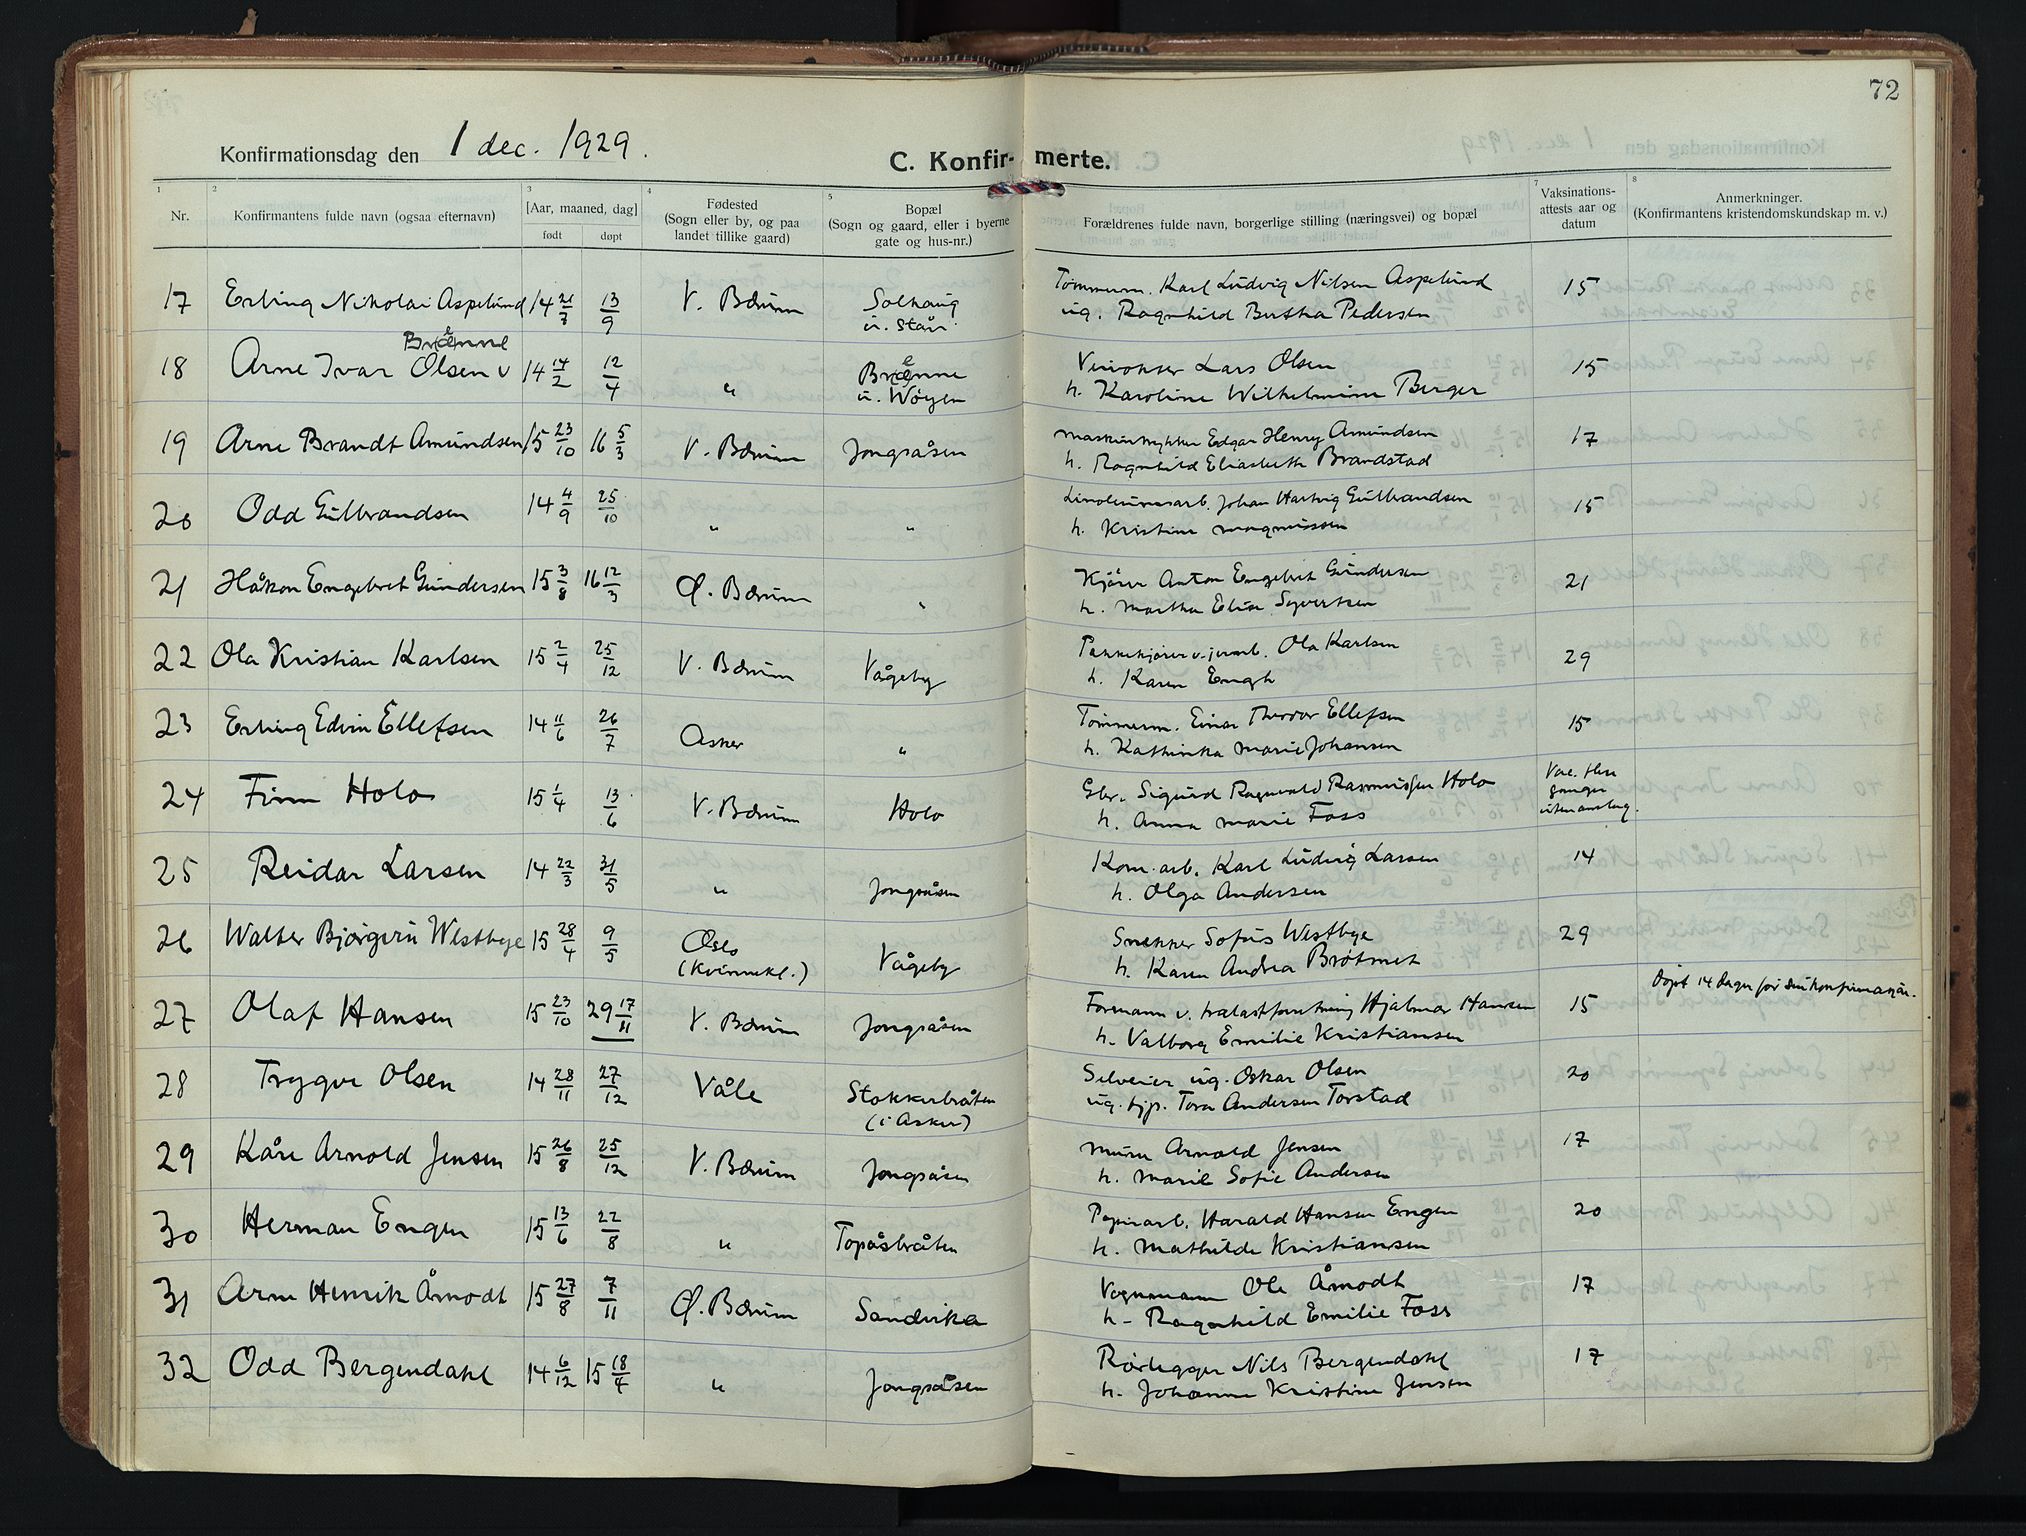 72
Konfirmationsdag den 1 dec. 1929.
C. Konfir- merte.
1 2 3 4 5 7 8
Nr.
Konfirmantens fulde navn (ogsaa efternavn)
[Aar, maaned, dag]
født døpt
Fødested
(Sogn eller by, og paa
landet tillike gaard)
Bopæl
(Sogn og gaard, eller i byerne
gate og hus-nr.)
Forældrenes fulde navn, borgerlige stilling (næringsvei) og bopæl
Vaksinations-
attests aar og
datum
Anmerkninger.
(Konfirmantens kristendomskundskap m. v.)
17 Erling Nikolai Aspelund 14 21/7 13/9 V. Bærum Solhaug
u. Stav.
Tømmerm. Karl Ludvig Nilsen Aspelund 15
ug. Ragnhild Bertha Pedersen
Brænne
18 Arne Ivar Olsen v 14 14/2 12/4 " Brænne
u. Wøyen
Lars Olsen 15
h. Karoline Wilhelmine Berger
19 Arne Brandt Amundsen 15 23/10 16 5/3 V. Bærum Jongsåsen
Maskintrykker Edgar Henry Amundsen 17
h. Ragnhild Elisabeth Brandstad
20 Odd Gulbrandsen 14 4/9 25/10 " "
Linoleumsarb. Johan Hartvig Gulbrandsen 15
h. Kristine Magnussen
21 Håkon Engebret Gundersen 15 3/8 16 12/3 Ø. Bærum "
Kjører Anton Engebret Gundersen 21
h. Martha Elise Syvertsen
22 Ola Kristian Karlsen 15 2/4 25/12 V. Bærum Vågeby
Pakkekjører v. jernb. Ola Karlsen 29
h. Karen Engh
23 Erling Edvin Ellefsen 14 11/6 26/7 Asker "
Tømmerm. Einar Theodor Ellefsen 15
h. Kathinka Marie Johansen
24 Finn Holo 15 1/4 13/6 V. Bærum Holo
Gbr. Sigurd Ragnvald Rasmussen Holo
h. Anna Marie Foss
Vac. flere
ganger
uten anslag.
25 Reidar Larsen 14 22/3 31/5 " Jongsåsen
Kom. arb. Karl Ludvig Larsen 14
h. Olga Andersen
26 Walter Bjørgvin Westbye 15 28/4 9/5 Oslo
(Kvinnekl.) Vågeby
Snekker Sofus Westbye 29
h. Karen Andrea Brøtmet
27 Olaf Hansen 15 23/10 29 17/11 V. Bærum Jongsåsen
Formann v. Hjalmar Hansen 15
h. Valborg Emilie Kristiansen
Døpt 14 dager før sin konfirmasjon.
28 Trygve Olsen 14 28/11 27/12 Våle Stokkerbråten
(i Asker)
Selveier ug. Oskar Olsen 20
ug. tjp. Tora Andersen Torstad
29 Kåre Arnold Jensen 15 26/8 25/12 V. Bærum Jongsåsen
Murer Arnold Jensen 17
h. Marie Sofie Andersen
30 Herman Engen 15 13/6 22/8 " Topåsbråten
Papirarb. Harald Hansen Engen 20
h. Mathilde Kristiansen
31 Arne Henrik Åmodt 15 27/8 7/11 Ø. Bærum Sandvika
Vognmann Ole Åmodt 17
h. Ragnhild Emilie Foss
32 Odd Bergendahl 14 6/12 15 18/4 " Jongsåsen
Rørlegger Nils Bergendahl 17
h. Johanne Kristine Jensen